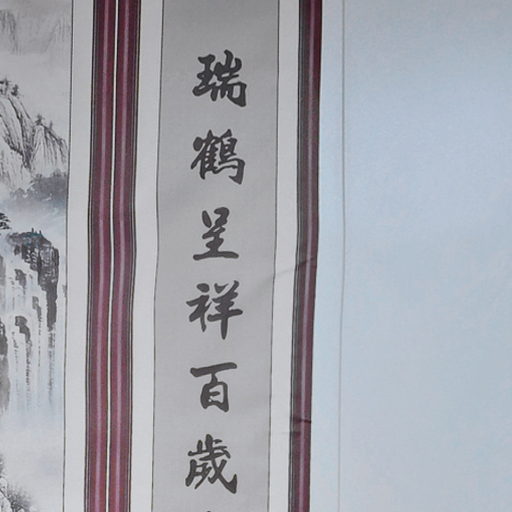 瑞鶴呈祥百歲